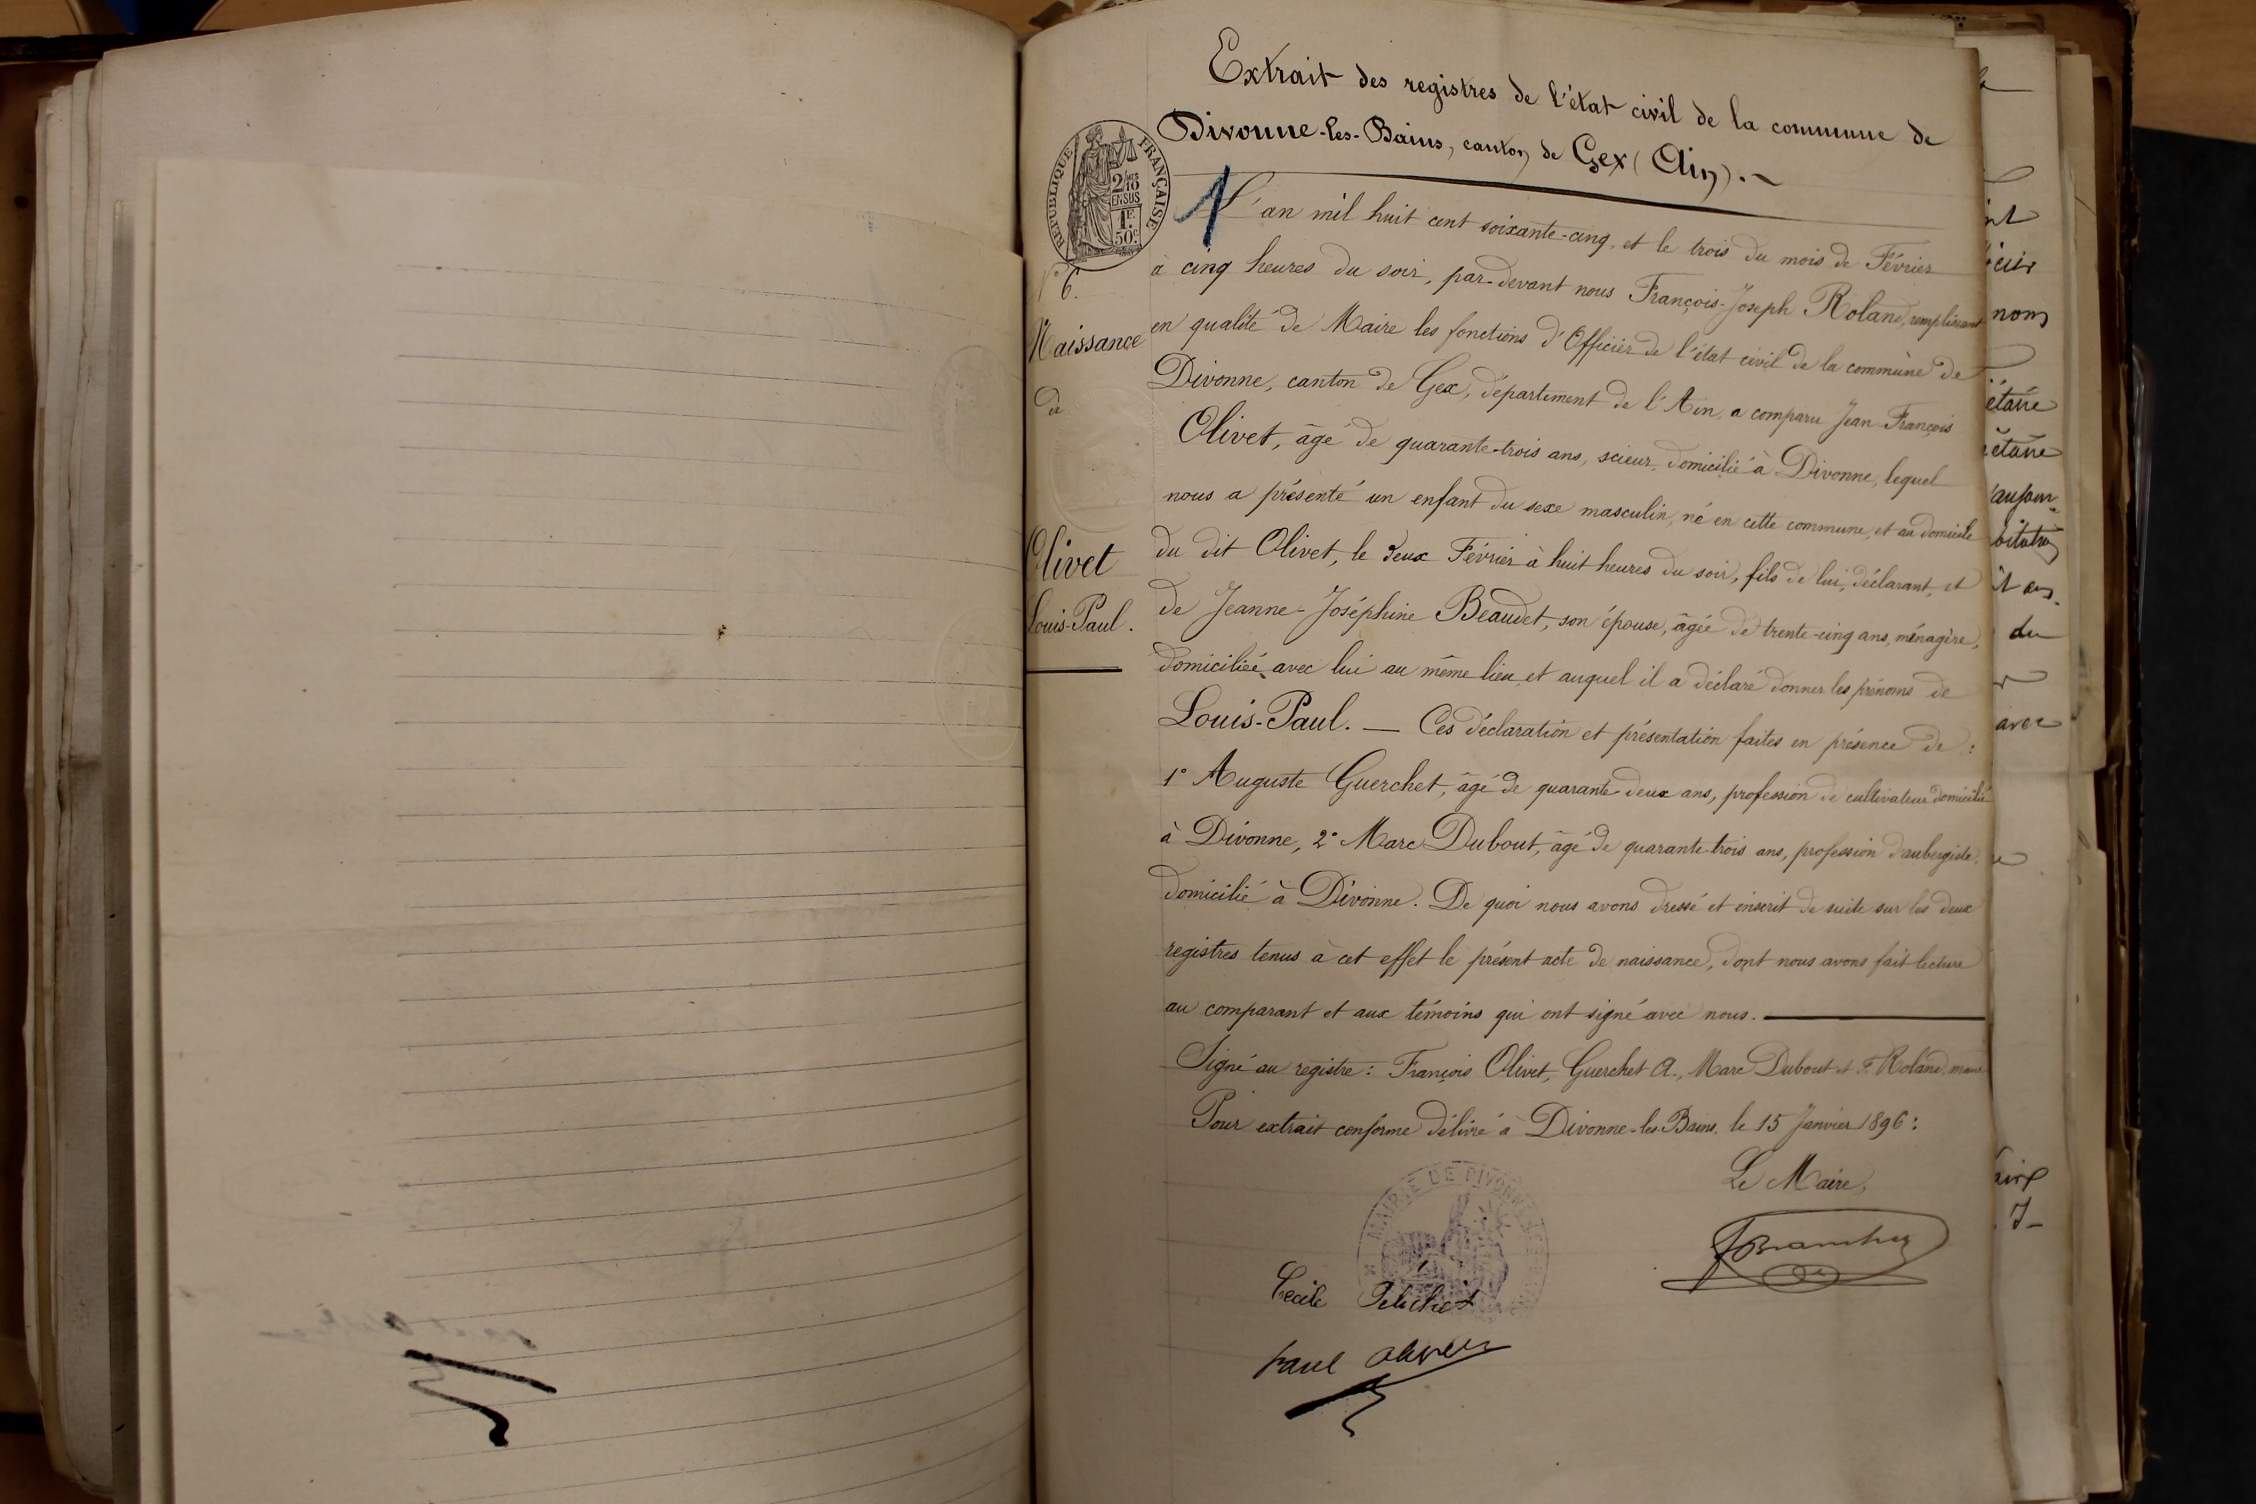 Extrait des registres de l'état civil de la commune de
Divonne-les-Bains, canton de Gex (Ain).
REPUBLIQUE FRANÇAISE
2/10
EN SUS
1F
50c
1
L'an mil huit cent soixante-cinq, et le trois du mois de Février
à cinq heures du soir, par-devant nous François-Joseph Roland, remplissant
en qualité de Maire les fonctions d'Officier de l'état civil de la commune de
Divonne, canton de Gex, département de l'Ain, a comparu Jean François
Olivet, âgé de quarante-trois ans, scieur, domicilié à Divonne, lequel
nous a présenté un enfant du sexe masculin, né en cette commune, et au domicile
du dit Olivet, le deux Février à huit heures du soir, fils de lui, déclarant, et
de Jeanne-Joséphine Beaudet, son épouse, âgée de trente-cinq ans, ménagère,
domiciliée avec lui au même lieu, et auquel il a déclaré donner les prénoms de
Louis-Paul. — Ces déclaration et présentation faites en présence de :
1° Auguste Guerchet, âgé de quarante-deux ans, profession de cultivateur domicilié
à Divonne, 2° Marc Dubout, âgé de quarante-trois ans, profession d'aubergiste,
domicilié à Divonne. De quoi nous avons dressé et inscrit de suite sur les deux
registres tenus à cet effet le présent acte de naissance, dont nous avons fait lecture
au comparant et aux témoins qui ont signé avec nous.
Signé au registre : François Olivet, Guerchet A., Marc Dubout et F. Roland, maire
Pour extrait conforme délivré à Divonne-les-Bains, le 15 Janvier 1896 :
Le Maire,
MAIRIE DE DIVONNE
Cécile Pelichet
Paul Olivet
N° 6.
Naissance
de
Olivet
Louis-Paul.
nom
étaire
étaire
du
avec